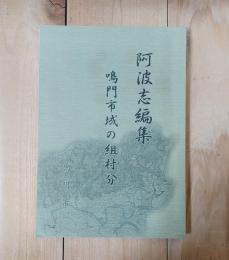 阿波志編集
鳴門市域の組村分